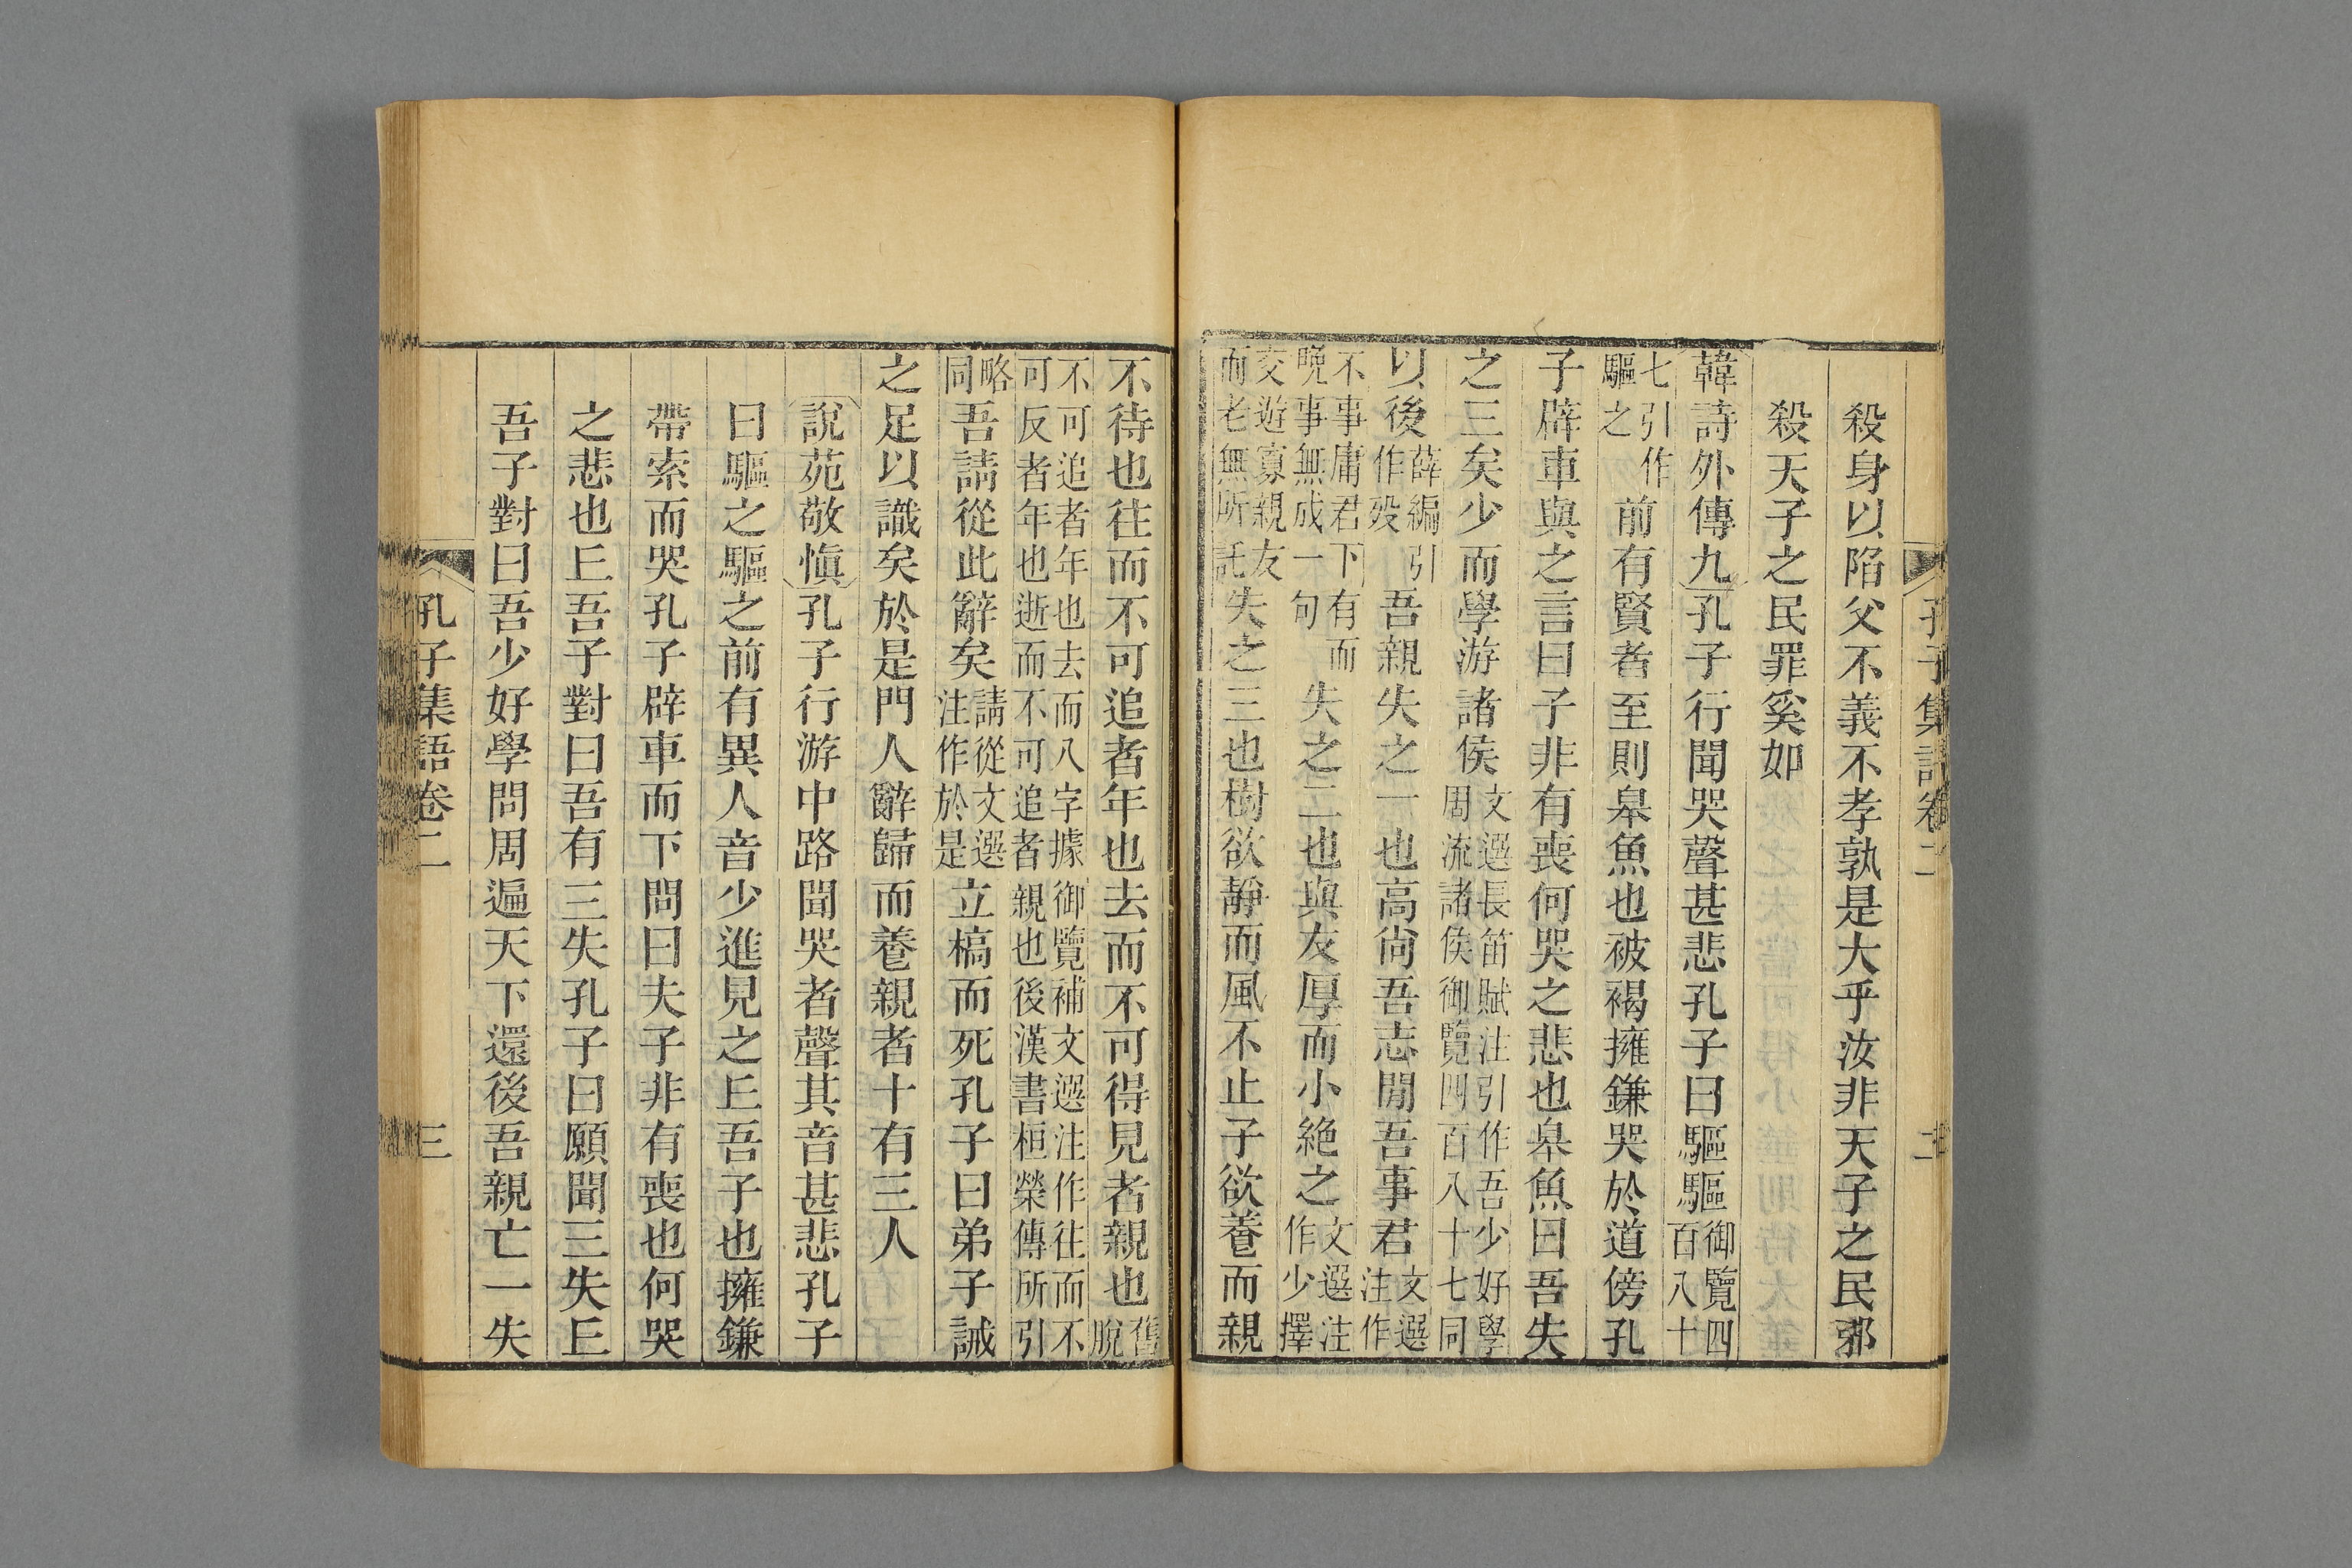 孔子集語卷二 二
殺身以陷父不義不孝孰是大乎汝非天子之民邪
殺天子之民罪奚如
韓詩外傳九孔子行聞哭聲甚悲孔子曰驅驅御覽四百八十
七引作驅之前有賢者至則臯魚也被褐擁鎌哭於道傍孔
子辟車與之言曰子非有喪何哭之悲也臯魚曰吾失
之三矣少而學游諸侯文選長笛賦注引作吾少好學周流諸侯御覽四百八十七同
以後薛編引作歿吾親失之一也高尙吾志閒吾事君文選注作
不事庸君下有而晚事無成一句失之二也與友厚而小絶之文選注作少擇
交遊寡親友而老無所託失之三也樹欲靜而風不止子欲養而親
不待也往而不可追者年也去而不可得見者親也舊脫
不可追者年也去而八字據御覽補文選注作往而不可反者年也逝而不可追者親也後漢書桓榮傳所引
略同吾請從此辭矣請從文選注作於是立槁而死孔子曰弟子誡
之足以識矣於是門人辭歸而養親者十有三人
說苑敬愼孔子行游中路聞哭者聲其音甚悲孔子
曰驅之驅之前有異人音少進見之丘吾子也擁鎌
帶索而哭孔子辟車而下問曰夫子非有喪也何哭
之悲也丘吾子對曰吾有三失孔子曰願聞三失丘
吾子對曰吾少好學問周遍天下還後吾親亡一失
孔子集語卷二 三